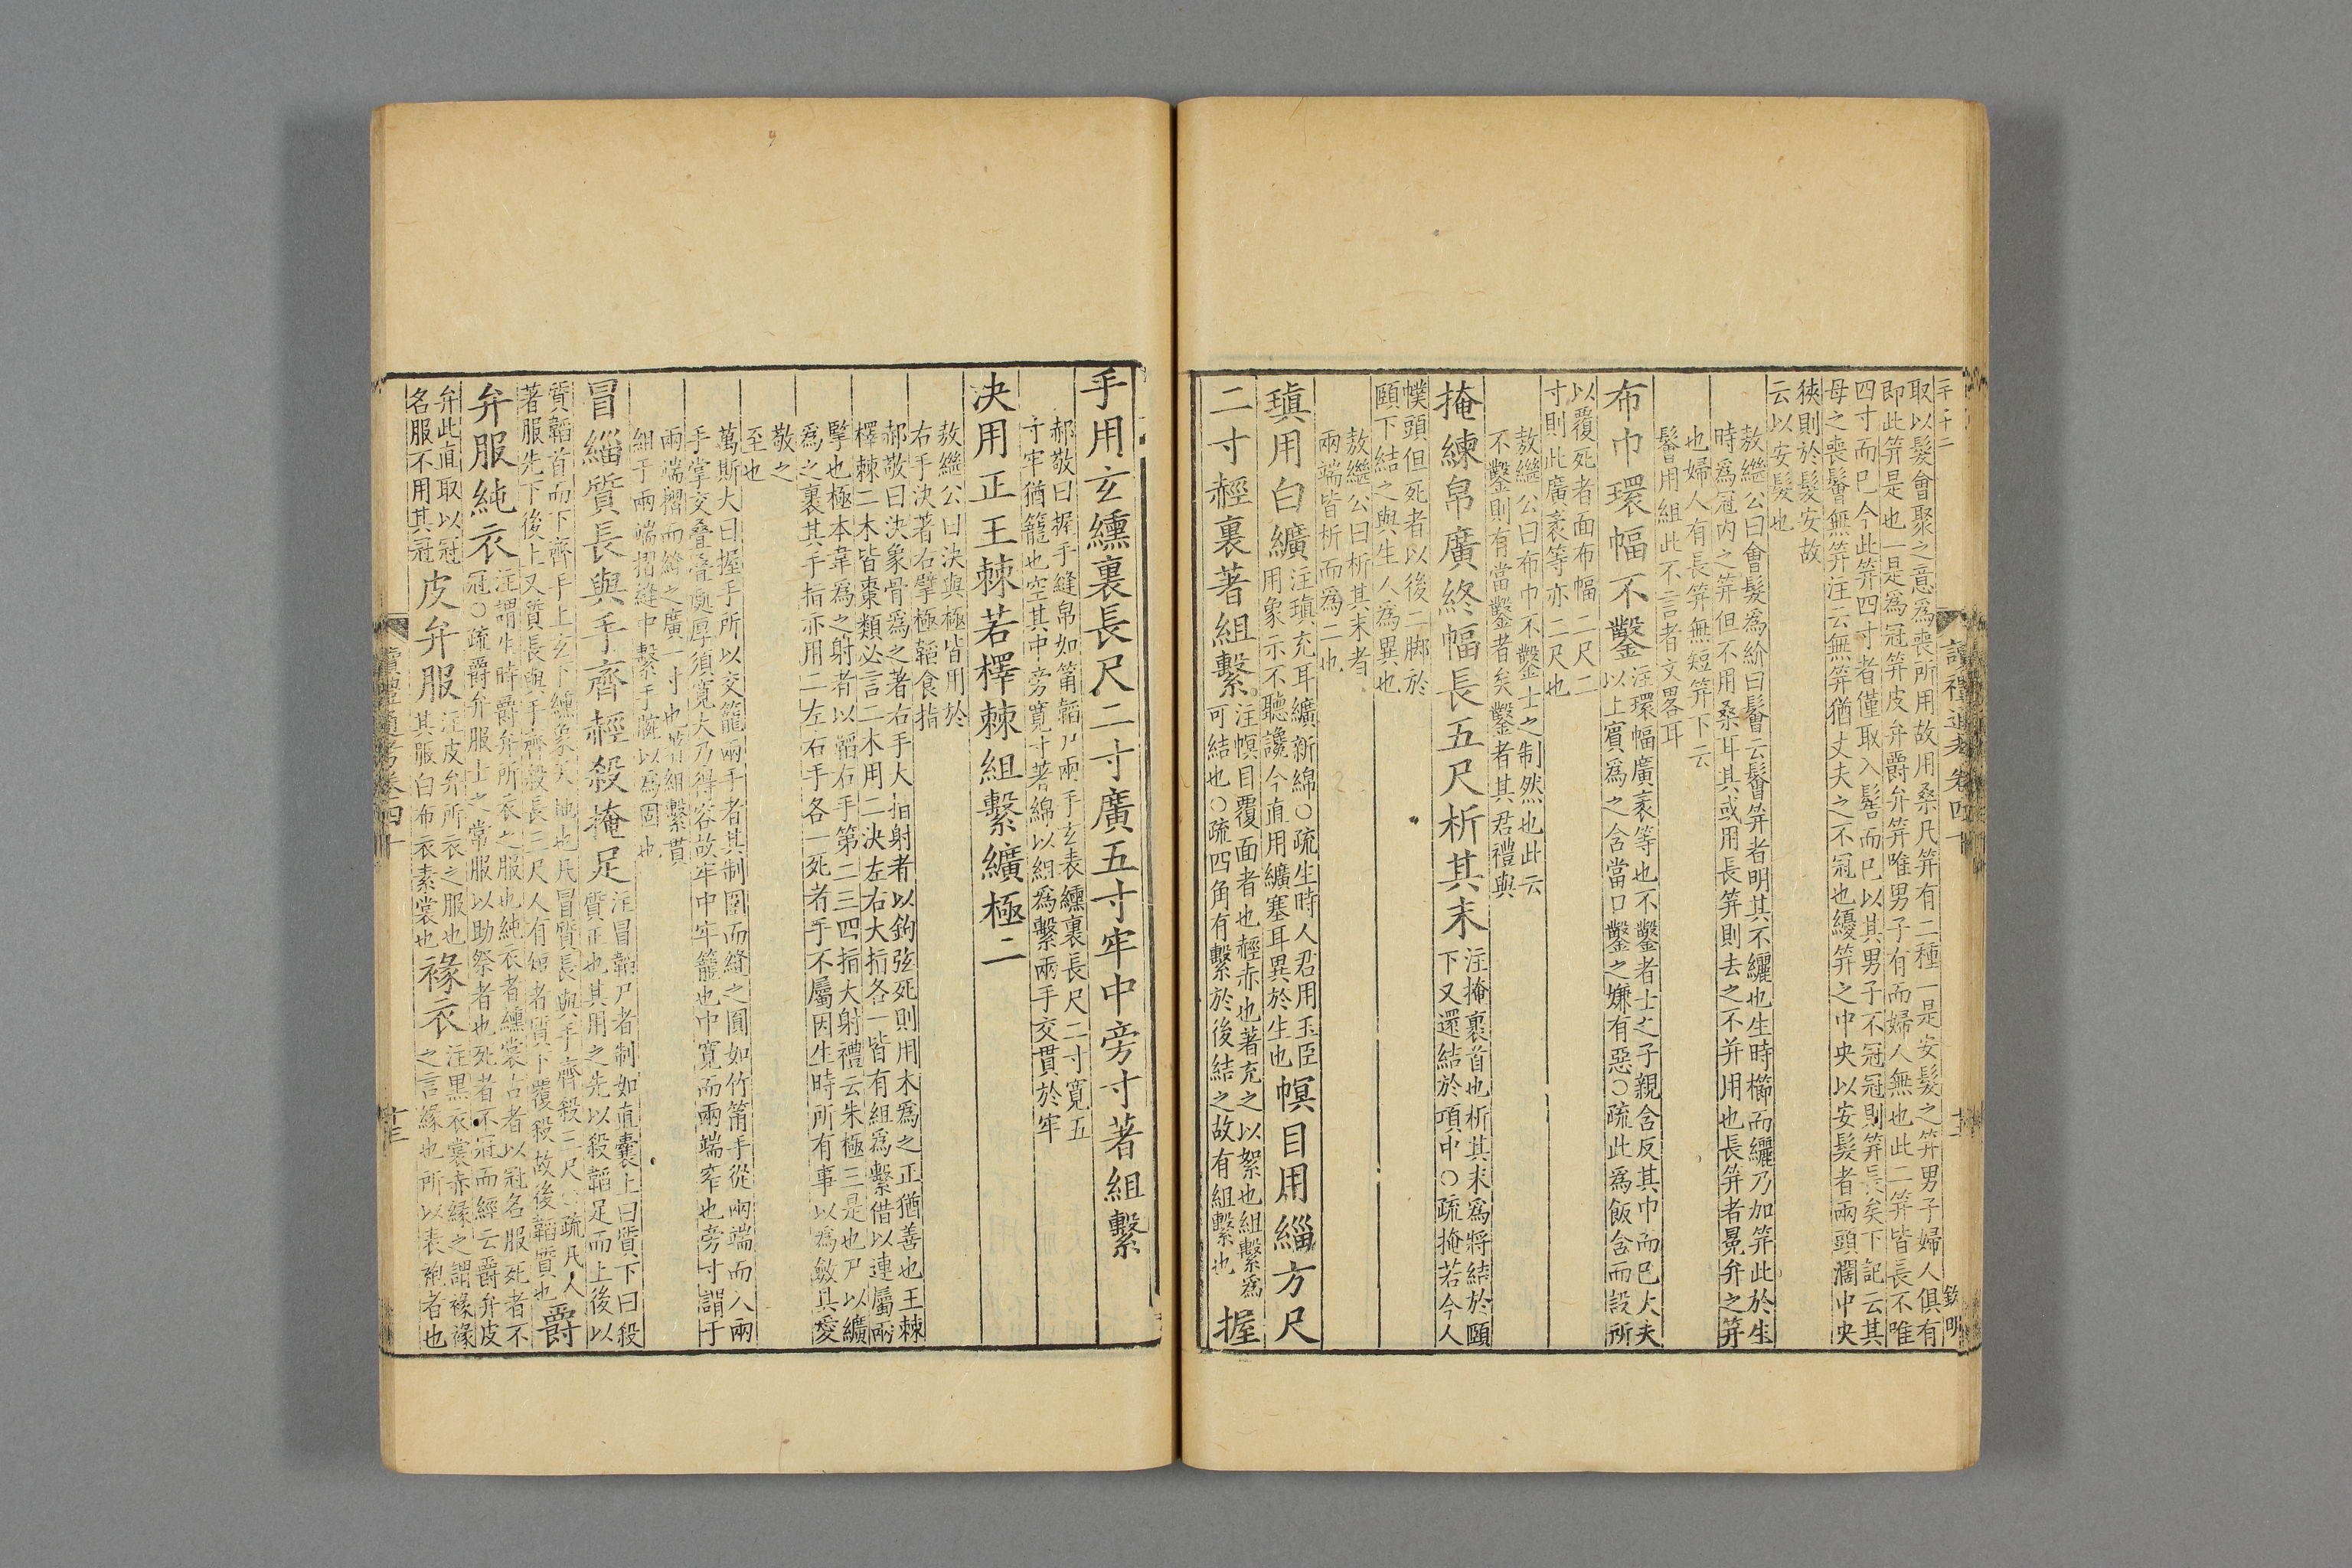 取以髮會聚之意為喪所用故用桑凡笄有二種一是安髮之笄男子婦人俱有
即此笄是也一是為冠笄皮弁爵弁笄唯男子有而婦人無也此二笄皆長不唯
四寸而已今此笄四寸者僅取入髻而已以其男子不冠冠則笄長矣下記云其
母之喪鬠無笄注云無笄猶丈夫之不冠也纋笄之中央以安髮者兩頭濶中央
狹則於髮安故
云以安髮也
敖繼公曰會髮為紒曰鬠云鬠笄者明其不纚也生時櫛而纚乃加笄此於生
時為冠內之笄但不用桑耳其或用長笄則去之不并用也長笄者冕弁之笄
也婦人有長笄無短笄下云
鬠用組此不言者文畧耳
布巾環幅不鑿
注環幅廣袤等也不鑿者士之子親含反其巾而已大夫
以上賓為之含當口鑿之嫌有惡○疏此為飯含而設所
以覆死者面布幅二尺二
寸則此廣袤等亦二尺也
敖繼公曰布巾不鑿士之制然也此云
不鑿則有當鑿者矣鑿者其君禮與
掩練帛廣終幅長五尺析其末
注掩裹首也析其末為將結於頤
下又還結於項中○疏掩若今人
幞頭但死者以後二脚於
頤下結之與生人為異也
敖繼公曰析其末者
兩端皆析而為二也
瑱用白纊
注瑱充耳纊新綿○疏生時人君用玉臣
用象示不聽讒今直用纊塞耳異於生也
幎目用緇方尺
二寸䞓裏著組繫
注幎目覆面者也䞓赤也著充之以絮也組繫為
可結也○疏四角有繫於後結之故有組繫也
握
讀禮通考卷四十
手用玄纁裏長尺二寸廣五寸牢中旁寸著組繫
郝敬曰握手縫帛如筩韜尸兩手玄表纁裏長尺二寸寛五
寸牢猶籠也空其中旁寛寸著綿以組為繫兩手交貫於牢
决用正王棘若檡棘組繫纊極二
敖繼公曰决與極皆用於
右手决著右擘極韜食指
郝敬曰決象骨為之著右手大指射者以鉤弦死則用木為之正猶善也王棘
檡棘二木皆棗類必言二木用二決左右大指各一皆有組為繫借以連屬兩
擥也極本韋為之射者以韜右手第二三四指大射禮云朱極三是也尸以纊
為之裹其手指亦用二左右手各一死者手不屬因生時所有事以為斂具愛
敬之
至也
萬斯大曰握手所以交籠兩手者其制圍而縫之圓如竹筩手從兩端而入兩
手掌交叠叠處厚須寬大乃得容故牢中牢籠也中寛而兩端窄也旁寸謂于
兩端摺而縫之廣一寸也著組繫貫
組于兩端摺縫中繫手腕以為固也
冒緇質長與手齊䞓殺掩足
注冒韜尸者制如直囊上曰質下曰殺
質正也其用之先以殺韜足而上後以
質韜首而下齊手上玄下纁象天地也凡冒質長與手齊殺三尺○疏凡人
著服先下後上又質長與手齊殺長三尺人有短者質下覆殺故後韜質也
爵
弁服純衣
注謂生時爵弁所衣之服也純衣者纁裳古者以冠名服死者不
冠○疏爵弁服士之常服以助祭者也死者不冠而經云爵弁皮
弁此直取以冠
名服不用其冠
皮弁服
注皮弁所衣之服也
其服白布衣素裳也
褖衣
注黑衣裳赤緣之謂褖褖
之言緣也所以表袍者也
讀禮通考卷四十
十三